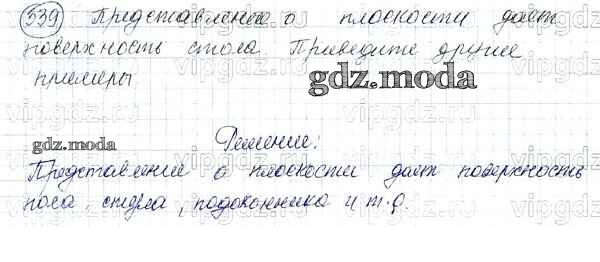 539 Представление о плоскости даёт
поверхность стола. Приведите другие
примеры
gdz.moda
gdz.moda
Решение:
Представление о плоскости даёт поверхность
пола, стула, подоконника и т.д.
vipgdz.ru